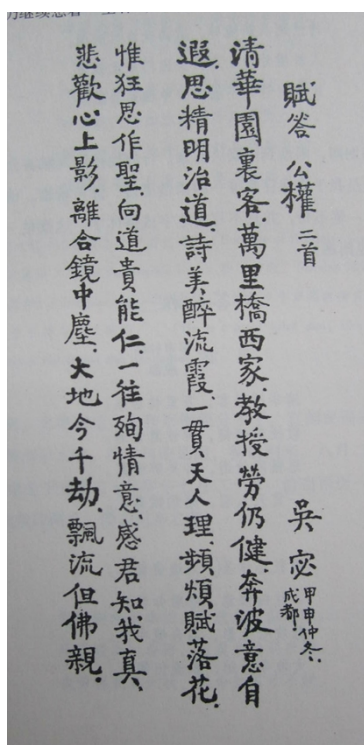 賦答 公權 二首
吳宓 甲申仲冬、
成都、
清華園裏客、萬里橋西家、教授勞仍健、奔波意自
遐、思精明治道、詩美醉流霞、一貫天人理、頻煩賦落花、
惟狂思作聖、向道貴能仁、一往殉情意、感君知我真、
悲歡心上影、離合鏡中塵、大地今千劫、飄流但佛親、